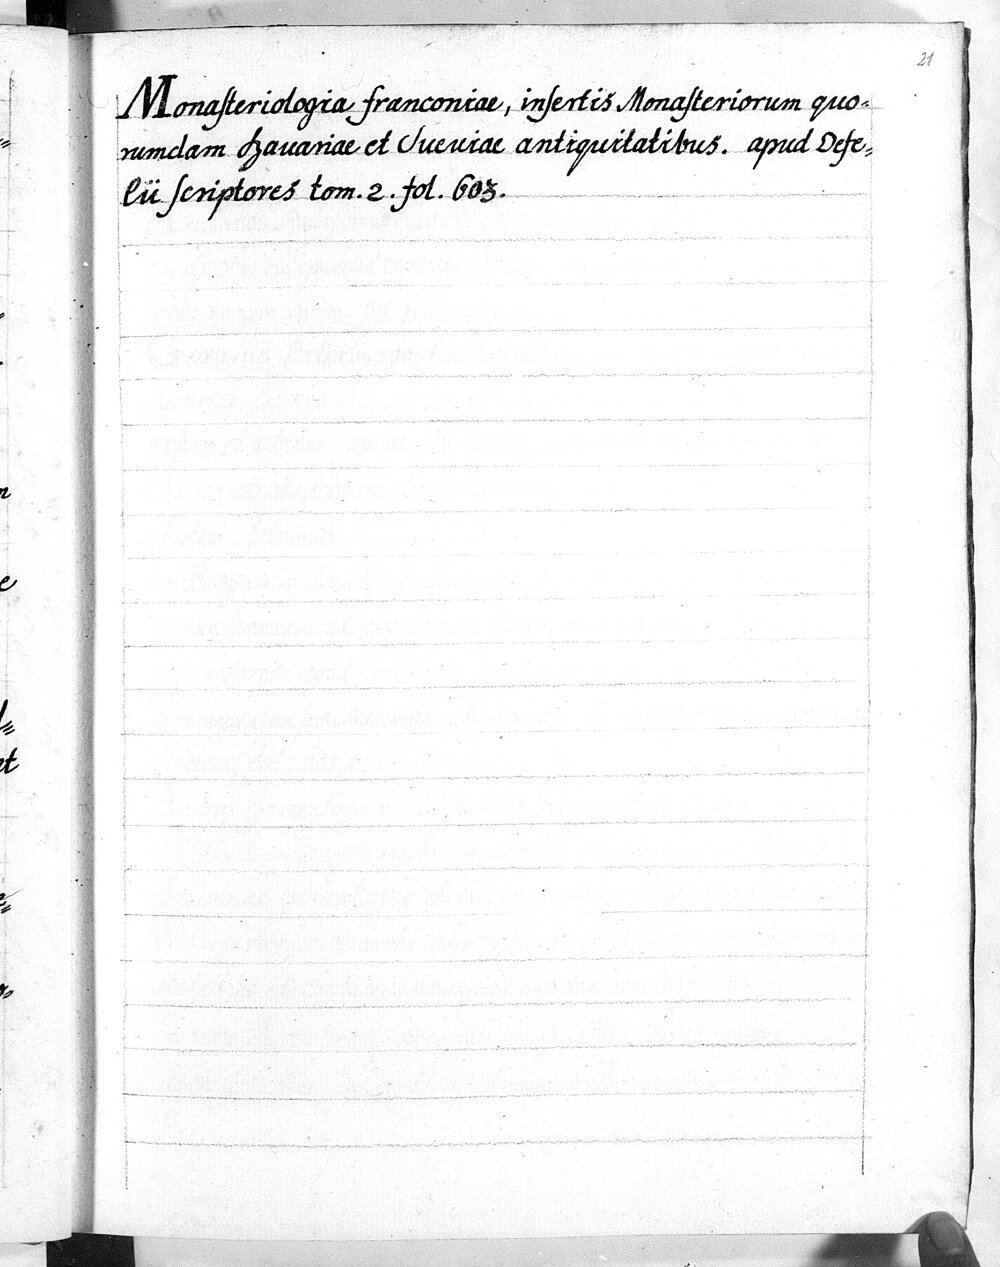 21
Monasteriologia franconiae, insertis Monasteriorum quo-
rumdam Bavariae et Sueviae antiquitatibus. apud Oefe-
lii scriptores tom. 2. fol. 603.
m
e
et